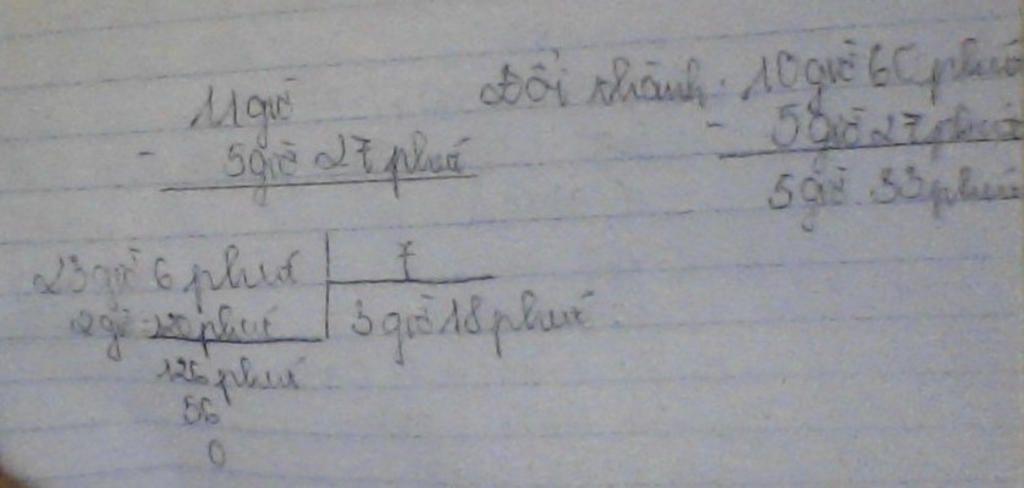 11 giờ Đổi thành: 10 giờ 60 phút
- 5 giờ 27 phút - 5 giờ 27 phút
5 giờ 33 phút
23 giờ 6 phút 7
2 giờ = 120 phút 3 giờ 18 phút
126 phút
56
0